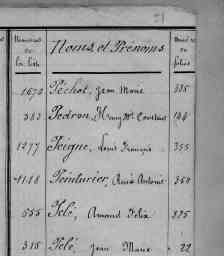 21
Numéros de la liste Noms et Prénoms Numéros de folios
1670 Péchot, Jean Marie 335
383 Pedron, Henry Mie Constant
1277 Peigné, Louis François 355
1188 Peinturier, René Antoine 360
555 Pelé, Amand Félix 325
315 Pelé, Jean Marie 22